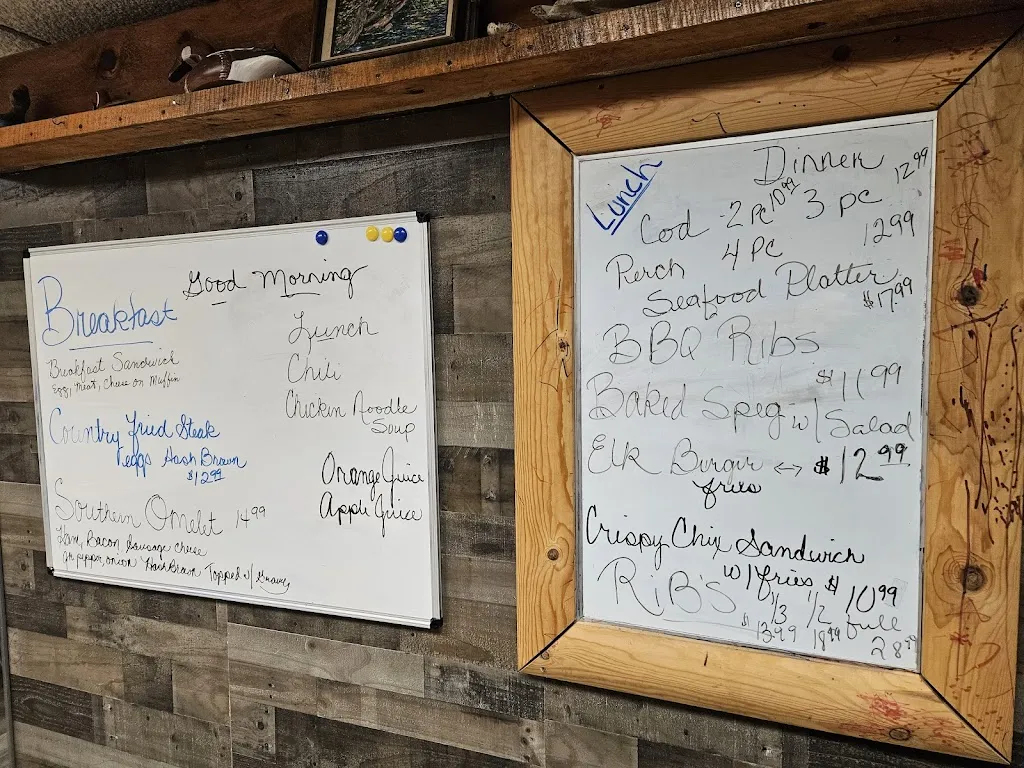 Good Morning
Breakfast
Breakfast Sandwich
Egg, Meat, Chese on Muffin
Country Fried Steak
eggs Hash Brown
$12.99
Southern Omelet 14.99
Ham, Bacon, Sausage Chese
Gr pepper, onion HashBrown Topped w/ Gravy
Lunch
Chili
Chicken Noodle
Soup
Orange Juice
Apple Juice
Lunch
Dinner
Cod 2 Pc 10.99 3 pc 12.99
Perch 4 Pc 12.99
Seafood Platter
$17.99
BBQ Ribs
$11.99
Baked Speg w/ Salad
Elk Burger <-> $12.99
fries
Crispy Chix Sandwich
w/fries $10.99
RiB's 1/3 1/2 full
$13.99 18.99 28.99